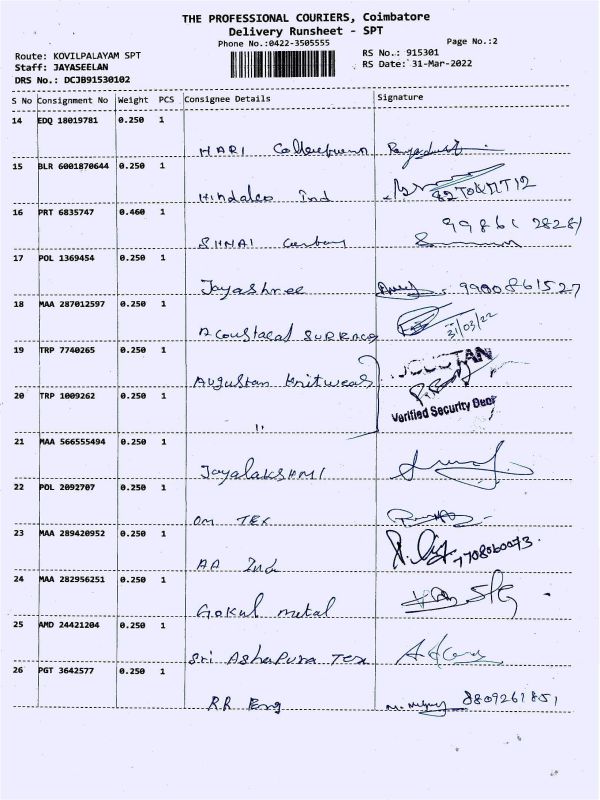 THE PROFESSIONAL COURIERS, Coimbatore
Delivery Runsheet - SPT
Phone No.:0422-3505555
Page No.:2
Route: KOVILPALAYAM SPT
RS No.: 915301
Staff: JAYASEELAN
RS Date: 31-Mar-2022
DRS No.: DCJB91530102
S No Consignment No Weight PCS Consignee Details Signature
14 EDQ 18019781 0.250 1
HARI
15 BLR 6001870644 0.250 1
Hindalco Ind
16 PRT 6835747 0.460 1
17 POL 1369454 0.250 1
Jayashree 9900861527
18 MAA 287012597 0.250 1
Acoustacal SURRACE 31/03/22
19 TRP 7740265 0.250 1
Augustan knitwears
20 TRP 1009262 0.250 1
"
Verified Security Dept
21 MAA 566555494 0.250 1
JayalakSHMI
22 POL 2092707 0.250 1
OM TEX
23 MAA 289420952 0.250 1
AA Ind 7708060073
24 MAA 282956251 0.250 1
Gokul metal
25 AMD 24421204 0.250 1
Sri Ashapura Tex
26 PGT 3642577 0.250 1
RR Eng 8809261851